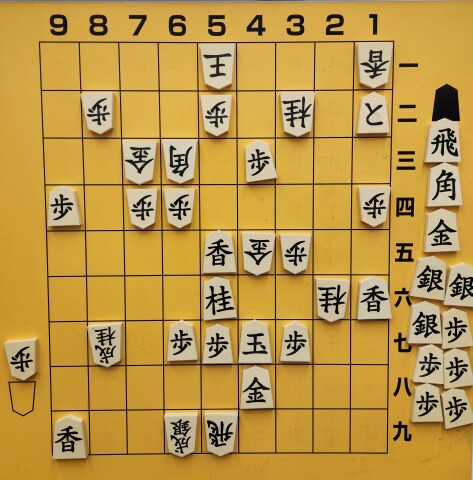 9 8 7 6 5 4 3 2 1
王 香 一
歩 歩 桂 と 二
金 角 歩 三
歩 歩 歩 歩 四
香 金 歩 五
桂 桂 香 六
成桂 歩 歩 玉 歩 七
金 八
香 成銀 飛 九
飛
角
金
銀 銀
銀 歩
歩 歩
歩 歩
歩